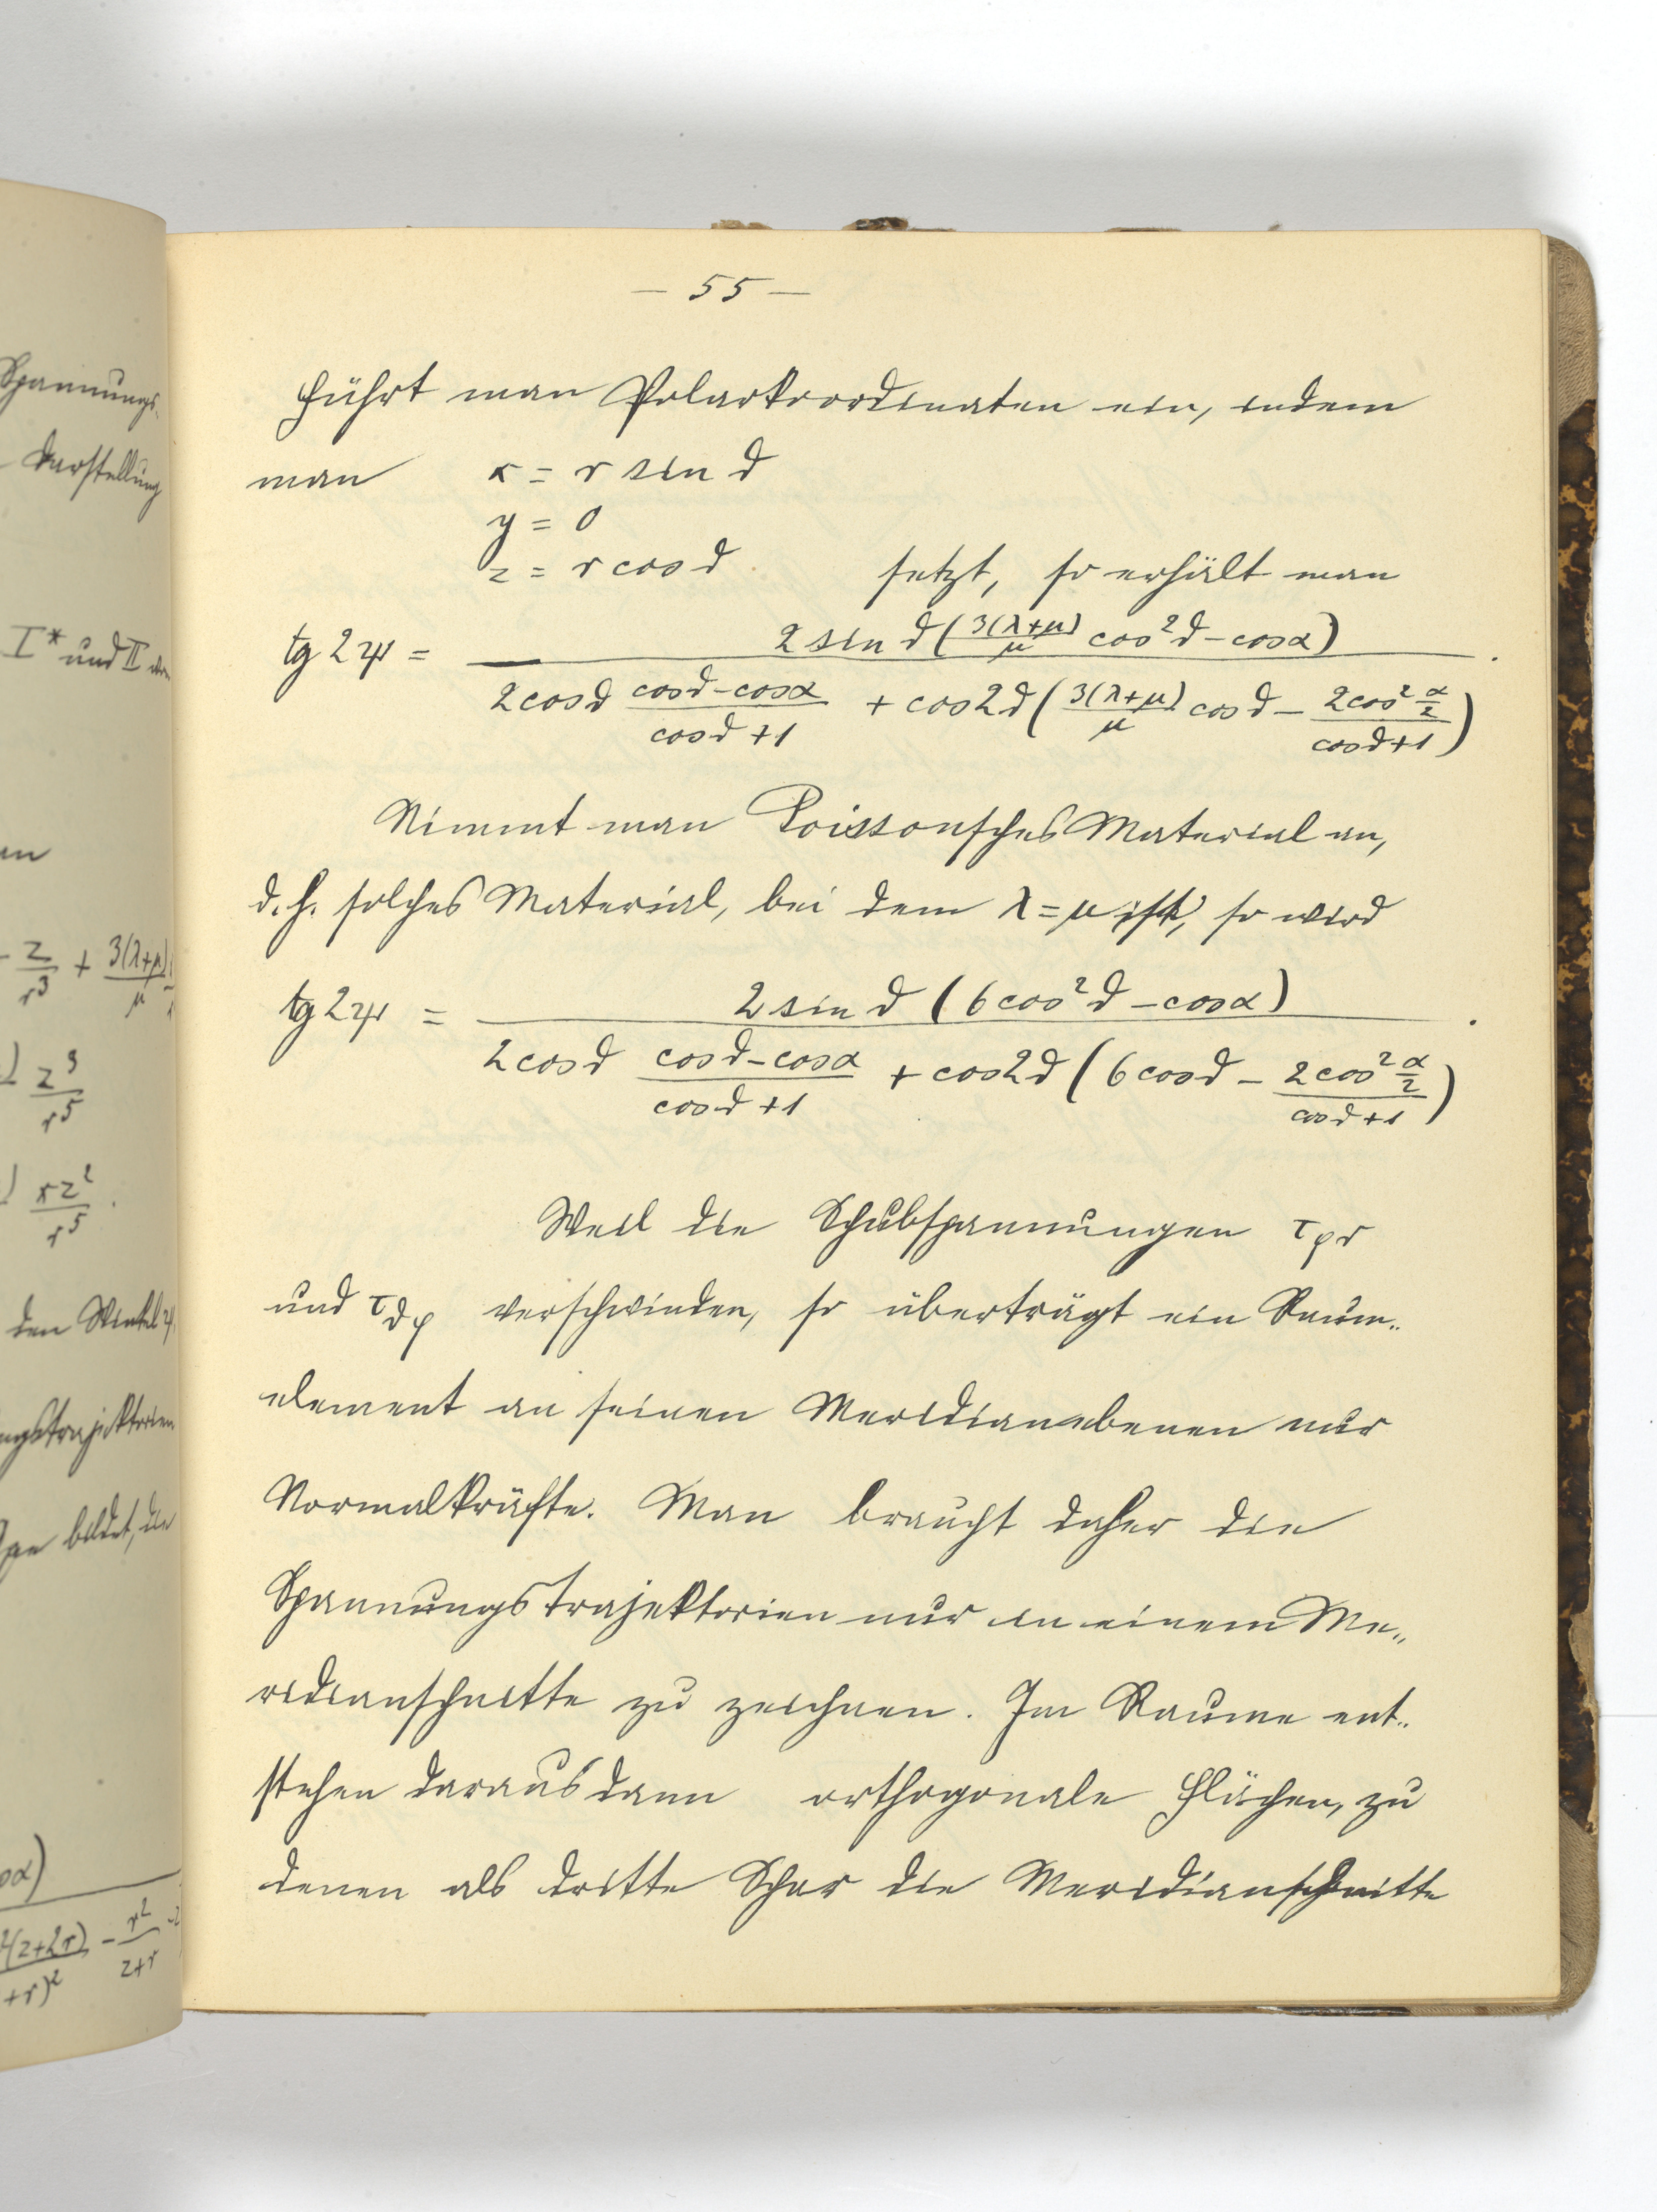 — 55 —
Führt man Polarkoordinaten ein, indem
man x = r sin ϑ
y = 0
z = r cos ϑ setzt, so erhält man
tg 2ψ = \frac{2 sin ϑ ( \frac{3(λ+μ)}{μ} cos²ϑ - cos α )}{2 cos ϑ \frac{cos ϑ - cos α}{cos ϑ + 1} + cos 2ϑ ( \frac{3(λ+μ)}{μ} cos ϑ - \frac{2 cos² \frac{α}{2}}{cos ϑ + 1} )} .
Nimmt man Poissonsches Material an,
d. h. solches Material, bei dem λ = μ ist, so wird
tg 2ψ = \frac{2 sin ϑ ( 6 cos²ϑ - cos α )}{2 cos ϑ \frac{cos ϑ - cos α}{cos ϑ + 1} + cos 2ϑ ( 6 cos ϑ - \frac{2 cos² \frac{α}{2}}{cos ϑ + 1} )} .
Weil die Schubspannungen τ_{φr}
und τ_{ϑφ} verschwinden, so überträgt ein Raum„
element an seinen Meridianebenen nur
Normalkräfte. Man braucht daher die
Spannungstrajektorien nur in einem Me„
ridianschnitte zu zeichnen. Im Raume ent„
stehen daraus dann orthogonale Flächen, zu
denen als dritte Schar die Meridianschnitte
Spannungs„
Darstellung
I* und II
\frac{z}{r³} + \frac{3(λ+μ)}{μ}
\frac{z³}{r⁵}
\frac{xz²}{r⁵} .
den Winkel ψ
ngstrajektorien
bildet, die